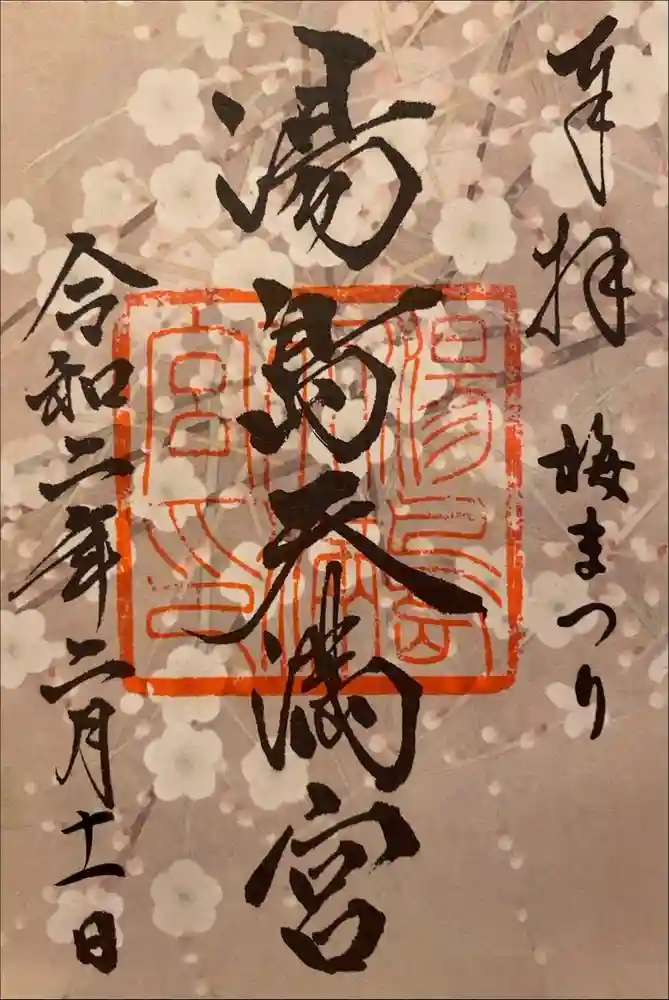 奉拝 梅まつり
湯島天満宮
湯島天満宮印
令和二年二月十一日